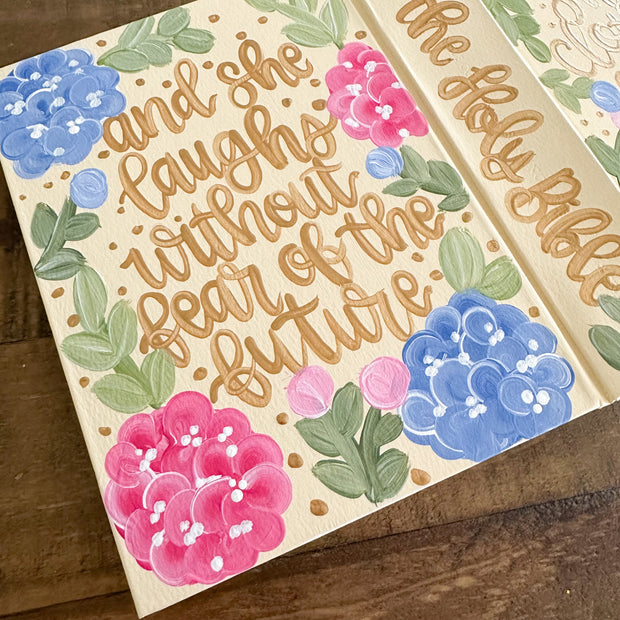 and she
laughs
without
fear of the
future
the Holy Bible